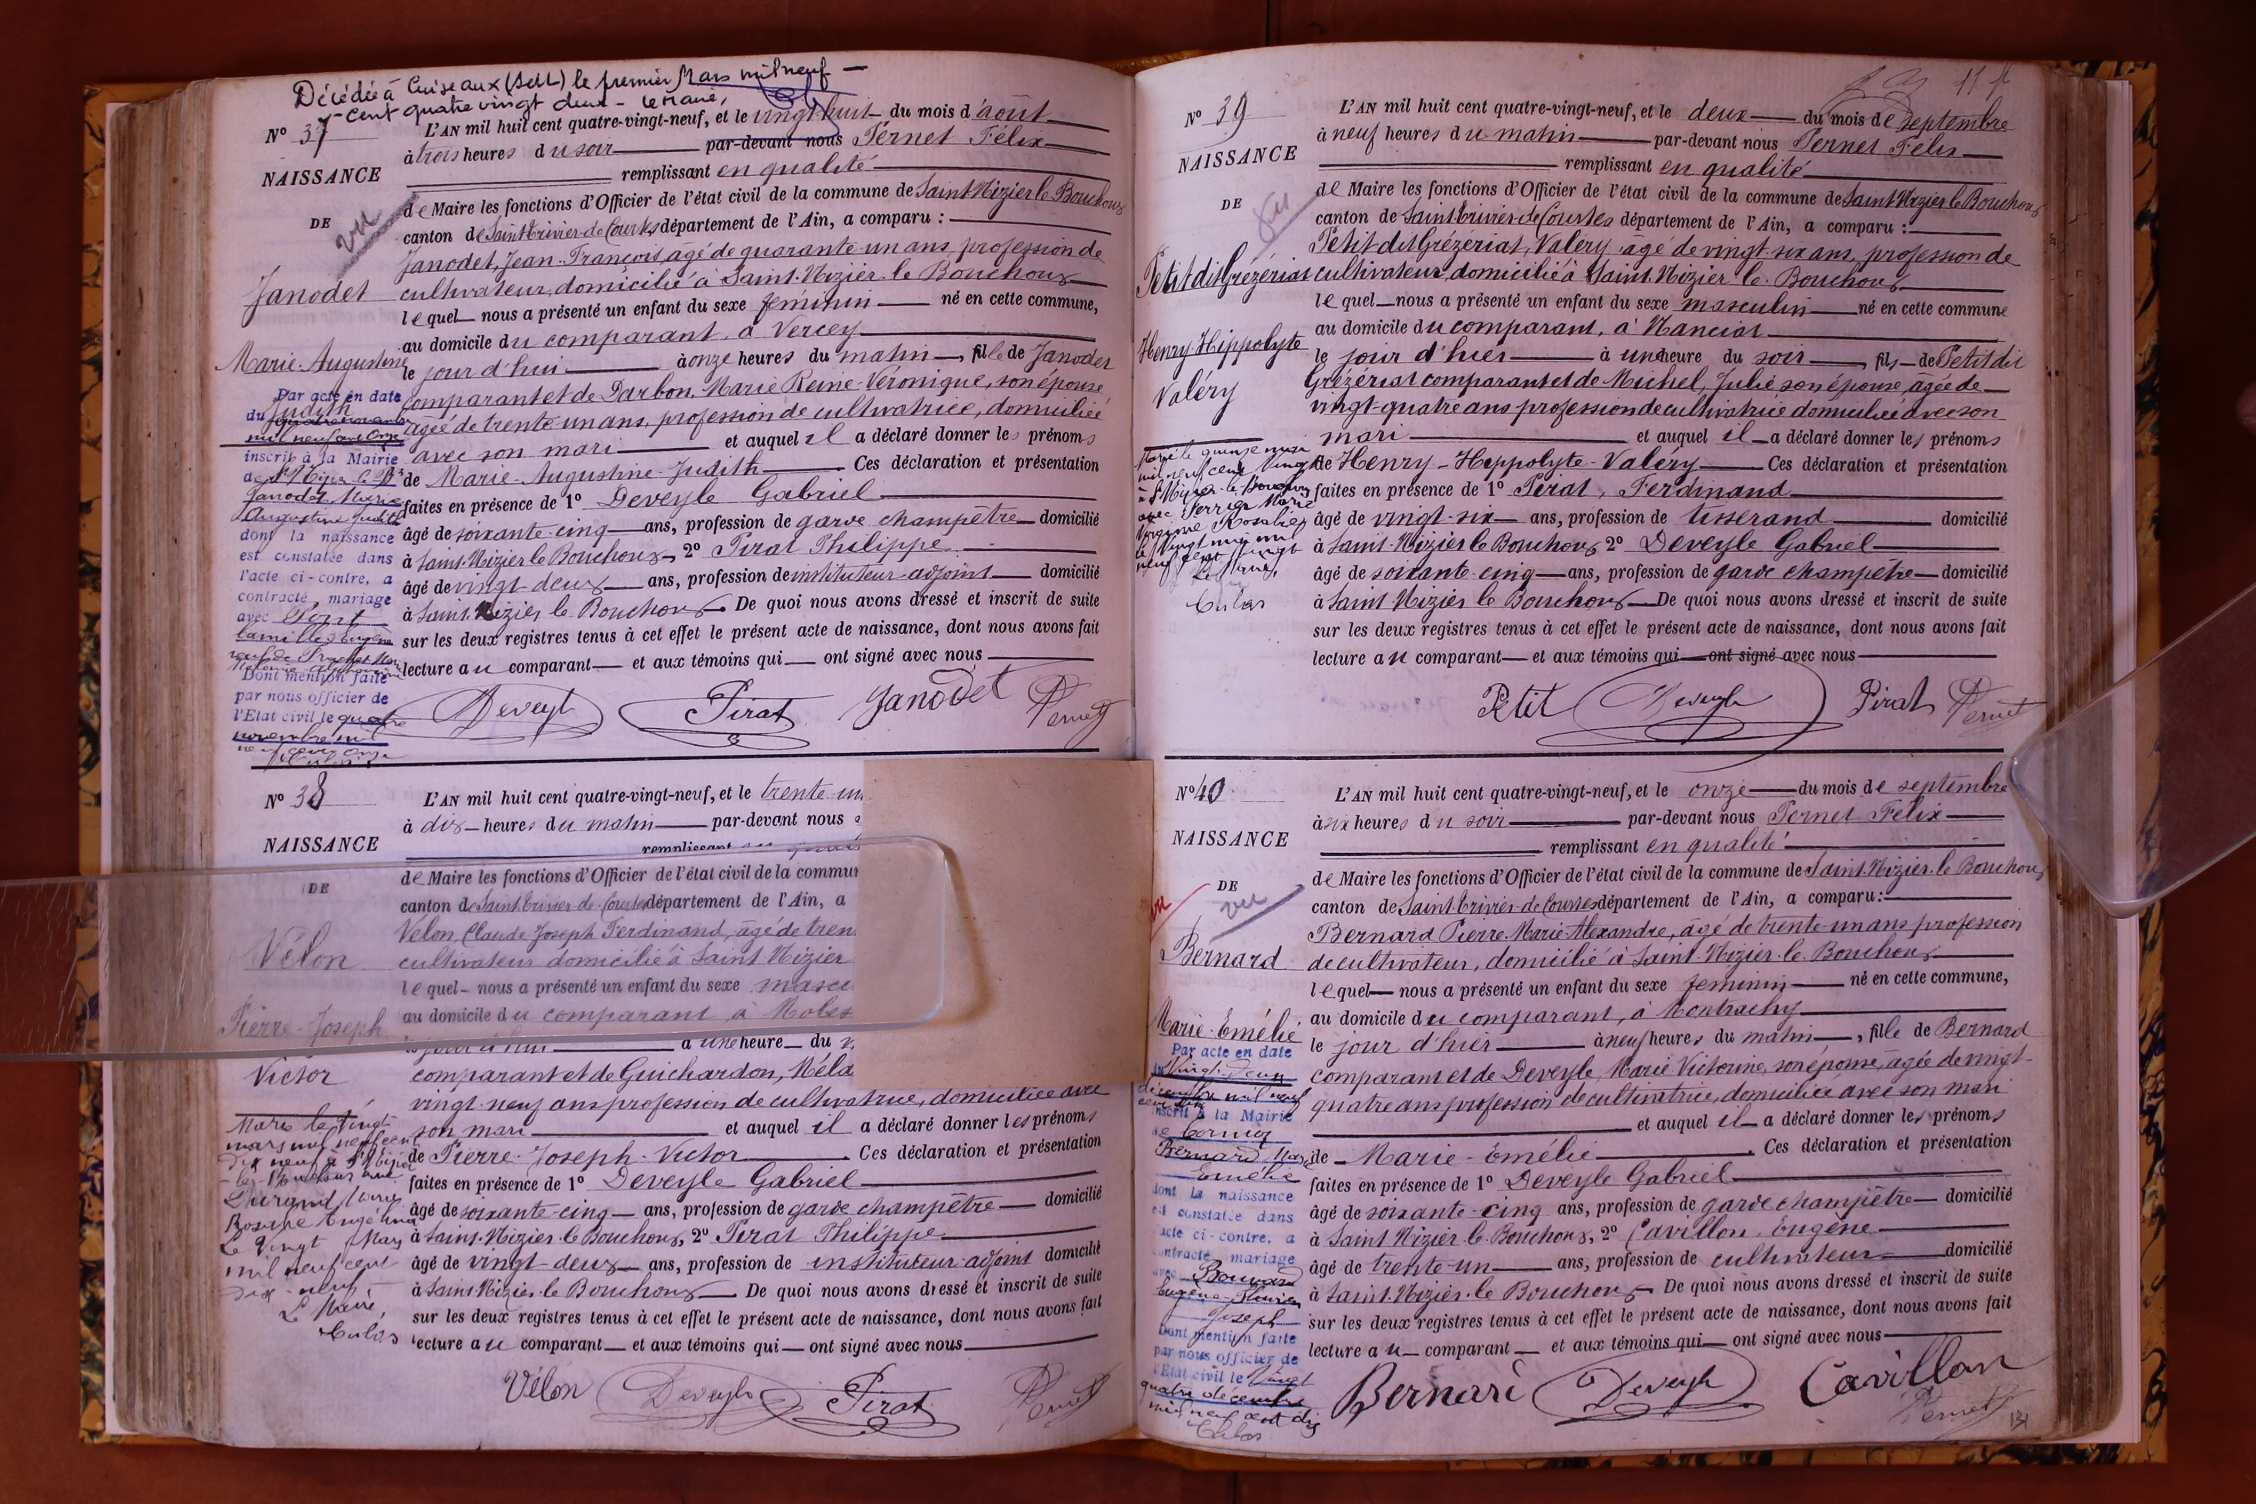 Décédée à Cuiseaux (S&L) le premier Mars mil neuf
cent quatre vingt deux - le Maire,
N° 37
NAISSANCE
DE
vu
Janodet
Marie-Augustine
Judith
L'AN mil huit cent quatre-vingt-neuf, et le vingt-huit du mois d'août
à trois heures du soir par-devant nous Pernet Félix
remplissant en qualité
de Maire les fonctions d'Officier de l'état civil de la commune de Saint-Nizier-le-Bouchoux
canton de Saint-Trivier-de-Courtes département de l'Ain, a comparu :
Janodet, Jean-François âgé de quarante-un ans, profession de
cultivateur, domicilié à Saint-Nizier-le-Bouchoux
lequel nous a présenté un enfant du sexe féminin né en cette commune,
au domicile du comparant, à Vercey
le jour d'hui à onze heures du matin, fille de Janodet
comparant et de Darbon, Marie Reine-Véronique, son épouse
âgée de trente-un ans, profession de cultivatrice, domiciliée
avec son mari et auquel il a déclaré donner les prénoms
de Marie-Augustine-Judith Ces déclaration et présentation
faites en présence de 1° Deveyle Gabriel
âgé de soixante-cinq ans, profession de garde champêtre domicilié
à Saint-Nizier le Bouchoux, 2° Pirat Philippe
âgé de vingt-deux ans, profession de instituteur-adjoint domicilié
à Saint-Nizier le Bouchoux De quoi nous avons dressé et inscrit de suite
sur les deux registres tenus à cet effet le présent acte de naissance, dont nous avons fait
lecture au comparant et aux témoins qui ont signé avec nous
Deveyle Pirat Janodet Pernet
Par acte en date
du quatre novembre
mil neuf cent onze
inscrit à la Mairie
de St Nizier le Bx
Janodet Marie
Augustine Judith
dont la naissance
est constatée dans
l'acte ci-contre, a
contracté mariage
avec
Camille Eugène
Dont mention faite
par nous officier de
l'Etat civil le quatre
novembre mil
neuf cent onze
N° 38
NAISSANCE
DE
Vélon
Pierre-Joseph
Victor
L'AN mil huit cent quatre-vingt-neuf, et le trente-un
à dix heures du matin par-devant nous
remplissant en qualité
de Maire les fonctions d'Officier de l'état civil de la commun
canton de Saint-Trivier-de-Courtes département de l'Ain, a
Vélon, Claude Joseph Ferdinand, âgé de tren
cultivateur domicilié à Saint Nizier
lequel nous a présenté un enfant du sexe mascu
au domicile du comparant, à Moles
le jour d'hui à une heure du
comparant et de Guichardon, Méla
vingt-neuf ans profession de cultivatrice, domiciliée avec
son mari et auquel il a déclaré donner les prénoms
de Pierre-Joseph-Victor Ces déclaration et présentation
faites en présence de 1° Deveyle Gabriel
âgé de soixante-cinq ans, profession de garde champêtre domicilié
à Saint-Nizier le Bouchoux, 2° Pirat Philippe
âgé de vingt-deux ans, profession de instituteur-adjoint domicilié
à Saint Nizier-le-Bouchoux De quoi nous avons dressé et inscrit de suite
sur les deux registres tenus à cet effet le présent acte de naissance, dont nous avons fait
lecture au comparant et aux témoins qui ont signé avec nous
Vélon Deveyle Pirat Pernet
Marié le vingt
mars mil neuf cent
dix neuf à St Nizier
le Bouchoux avec
Durand Marie
Rosine Eugénie
Le Vingt Mars
mil neuf cent
dix-neuf
Le Maire,
Culas
N° 39
NAISSANCE
DE
Vu
Petit dit Grézériat
Henry Hippolyte
Valéry
L'AN mil huit cent quatre-vingt-neuf, et le deux du mois de septembre
à neuf heures du matin par-devant nous Pernet Félix
remplissant en qualité
de Maire les fonctions d'Officier de l'état civil de la commune de Saint Nizier le Bouchoux
canton de Saint-Trivier-de-Courtes département de l'Ain, a comparu :
Petit dit Grézériat, Valéry âgé de vingt-six ans, profession de
cultivateur, domicilié à Saint-Nizier-le-Bouchoux
lequel nous a présenté un enfant du sexe masculin né en cette commune
au domicile du comparant, à Nanciat
le jour d'hier à une heure du soir, fils de Petit dit
Grézériat comparant et de Michel, Julie son épouse, âgée de
vingt-quatre ans profession de cultivatrice domiciliée avec son
mari et auquel il a déclaré donner les prénoms
de Henry-Hippolyte-Valéry Ces déclaration et présentation
faites en présence de 1° Pirat, Ferdinand
âgé de vingt-six ans, profession de tisserand domicilié
à Saint-Nizier le Bouchoux 2° Deveyle Gabriel
âgé de soixante-cinq ans, profession de garde champêtre domicilié
à Saint Nizier le Bouchoux De quoi nous avons dressé et inscrit de suite
sur les deux registres tenus à cet effet le présent acte de naissance, dont nous avons fait
lecture au comparant et aux témoins qui ont signé avec nous
Petit Deveyle Pirat Pernet
Marié le quinze mai
mil neuf cent vingt
à St Nizier-le-Bouchoux
avec Perrier Marie
Rosalie
Le vingt mai mil
neuf cent vingt
Le Maire,
Culas
N° 40
NAISSANCE
DE
vu
Bernard
Marie-Emélie
L'AN mil huit cent quatre-vingt-neuf, et le onze du mois de septembre
à six heures du soir par-devant nous Pernet Félix
remplissant en qualité
de Maire les fonctions d'Officier de l'état civil de la commune de Saint-Nizier-le-Bouchoux
canton de Saint-Trivier-de-Courtes département de l'Ain, a comparu :
Bernard Pierre-Marie-Alexandre, âgé de trente-un ans profession
de cultivateur, domicilié à Saint-Nizier-le-Bouchoux
lequel nous a présenté un enfant du sexe féminin né en cette commune,
au domicile du comparant, à Montrachy
le jour d'hier à neuf heures du matin, fille de Bernard
comparant et de Deveyle, Marie Victorine, son épouse, âgée de vingt-
quatre ans profession de cultivatrice, domiciliée avec son mari
et auquel il a déclaré donner les prénoms
de Marie-Emélie Ces déclaration et présentation
faites en présence de 1° Deveyle Gabriel
âgé de soixante-cinq ans, profession de garde champêtre domicilié
à Saint Nizier-le-Bouchoux, 2° Cavillon, Eugène
âgé de trente-un ans, profession de cultivateur domicilié
à Saint-Nizier-le-Bouchoux De quoi nous avons dressé et inscrit de suite
sur les deux registres tenus à cet effet le présent acte de naissance, dont nous avons fait
lecture au comparant et aux témoins qui ont signé avec nous
Bernard Deveyle Cavillon
Pernet
Par acte en date
du vingt-deux
décembre mil neuf
cent dix
inscrit à la Mairie
de Cormoz
Bernard Marie
Emélie
dont la naissance
est constatée dans
l'acte ci-contre, a
contracté mariage
avec Bouvard
Eugène-
Joseph
Dont mention faite
par nous officier de
l'Etat civil le vingt
quatre décembre
mil neuf cent dix
Culas